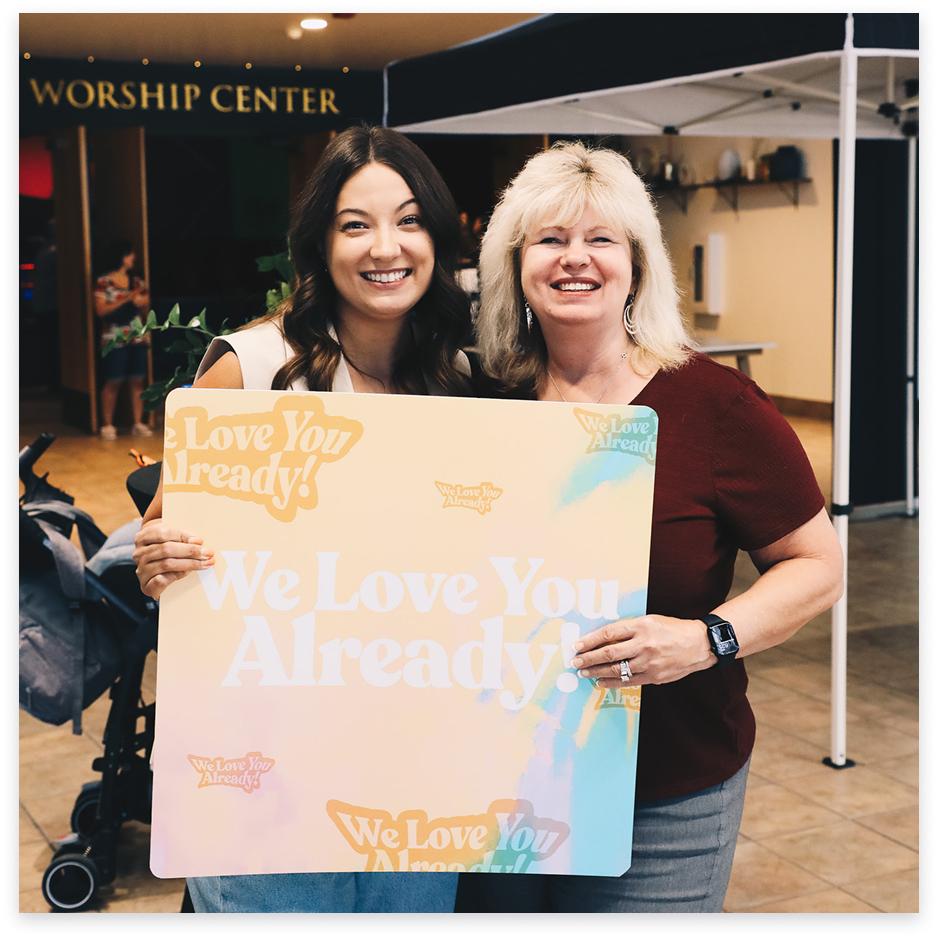 WORSHIP CENTER
e Love You
Already!
We Love
Already
We Love You
Already!
We Love You
Already!
Alre
We Love You
Already!
We Love You
Already!